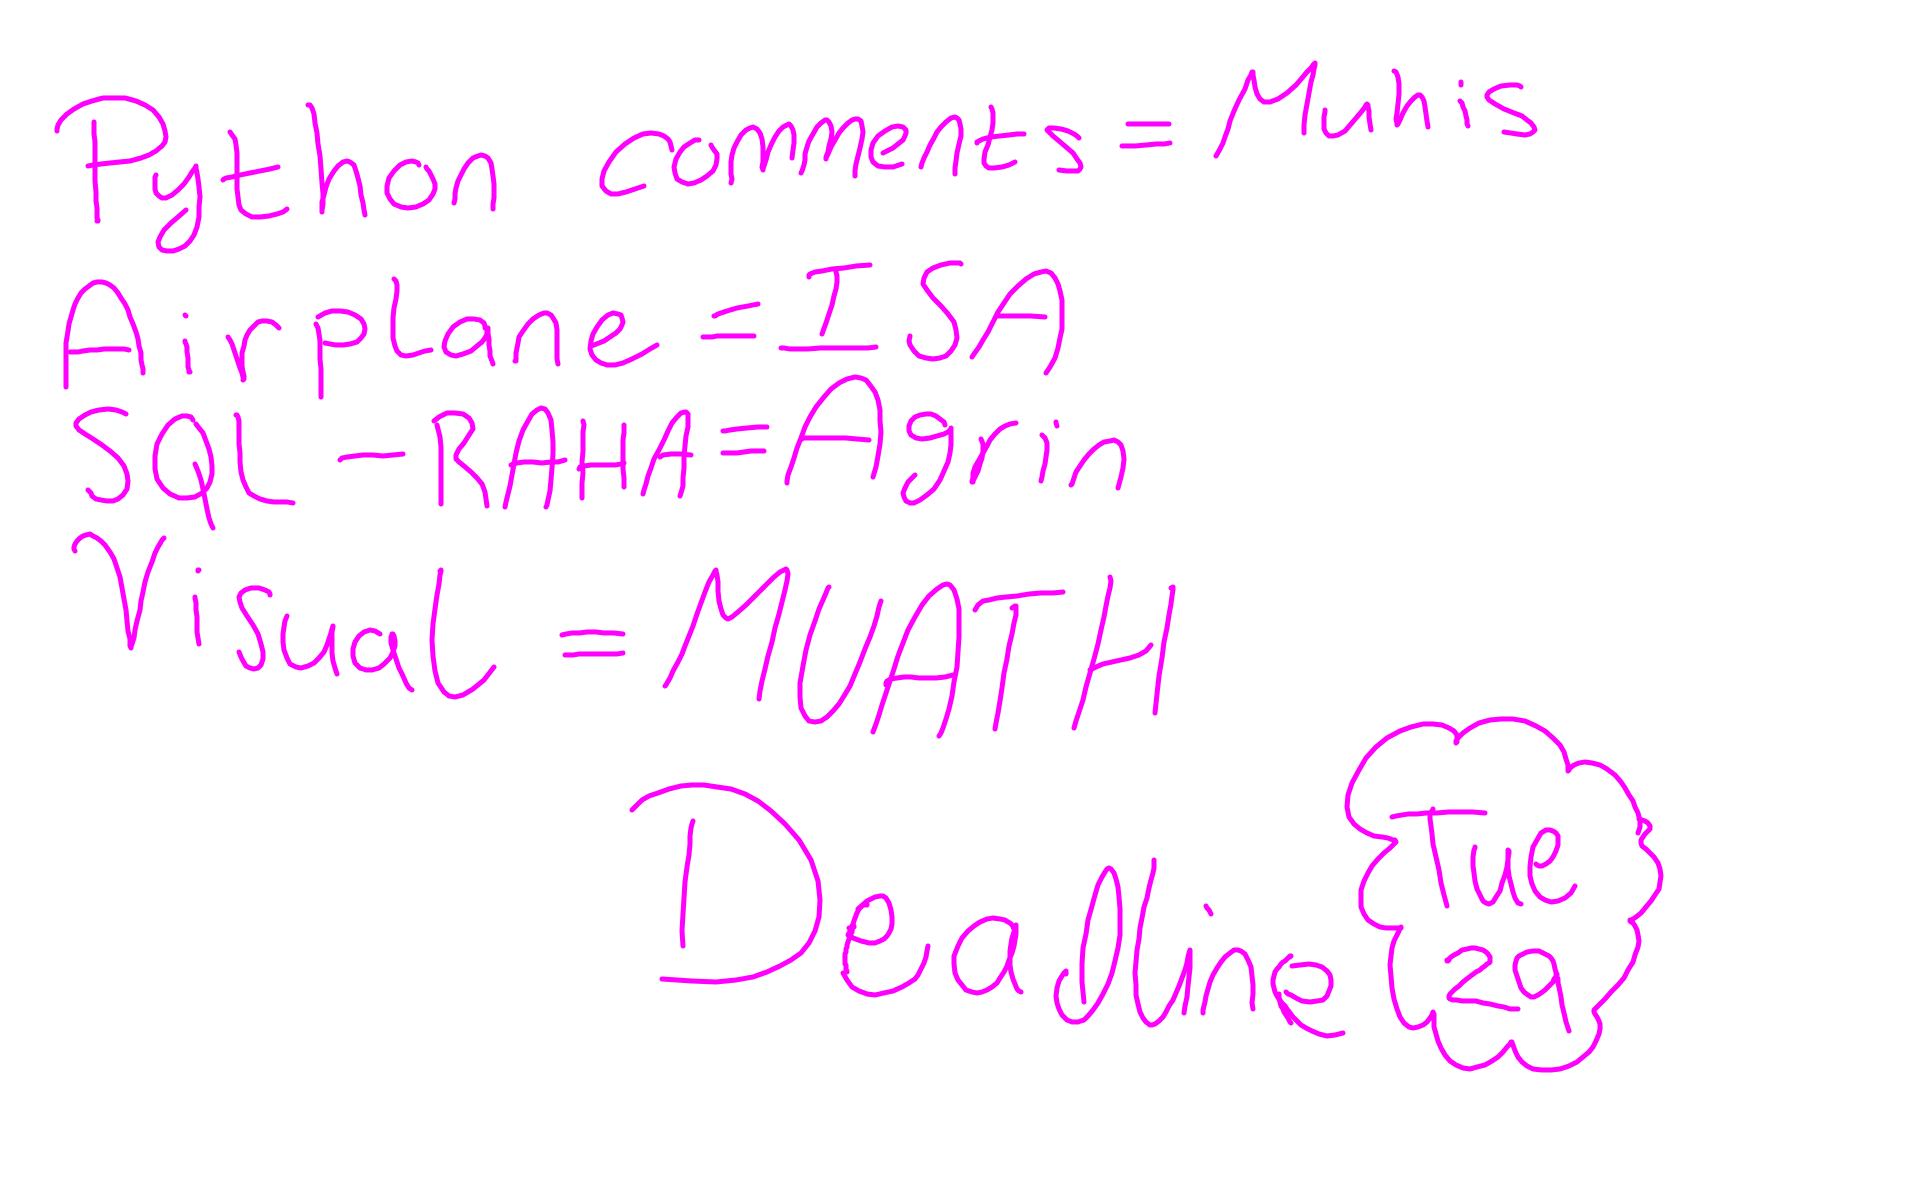 Python comments = Muhis
Airplane = ISA
SQL - RAHA = Agrin
Visual = MUATH
Deadline
Tue
29